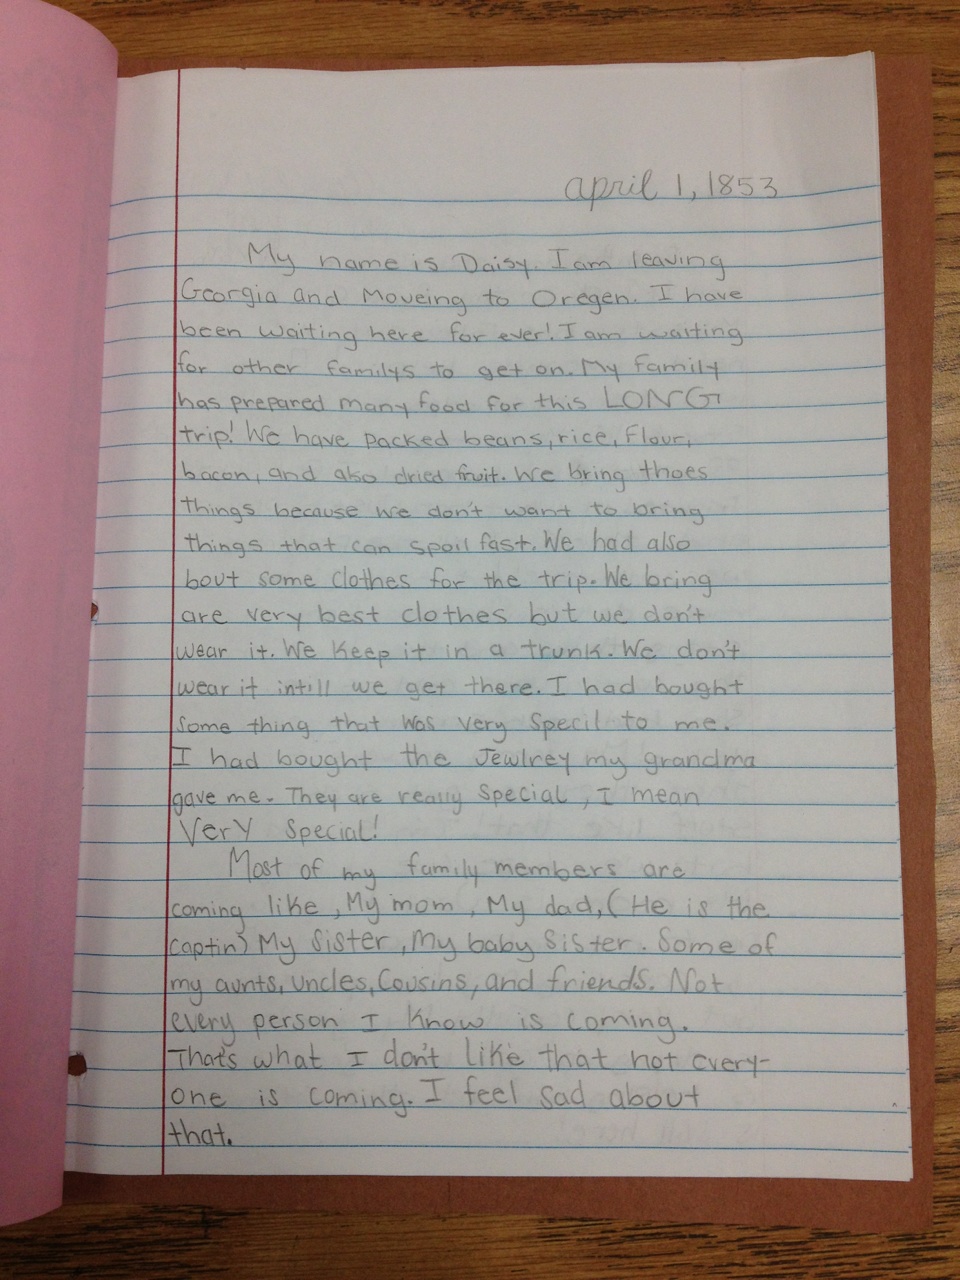 april 1, 1853
My name is Daisy. I am leaving
Georgia and Moveing to Oregen. I have
been waiting here for ever! I am waiting
for other familys to get on. My family
has prepared many food for this LONG
trip! We have packed beans, rice, flour,
bacon, and also dried fruit. We bring thoes
things because we don't want to bring
things that can spoil fast. We had also
bout some clothes for the trip. We bring
are very best clothes but we don't
wear it. We keep it in a trunk. We don't
wear it intill we get there. I had bought
some thing that was very specil to me.
I had bought the Jewlrey my grandma
gave me. They are really special, I mean
VerY special!
Most of my family members are
coming like, My mom, My dad, (He is the
captin) My sister, My baby sister. Some of
my aunts, uncles, Cousins, and friends. Not
every person I know is coming.
That's what I don't like that not every-
one is coming. I feel sad about
that.